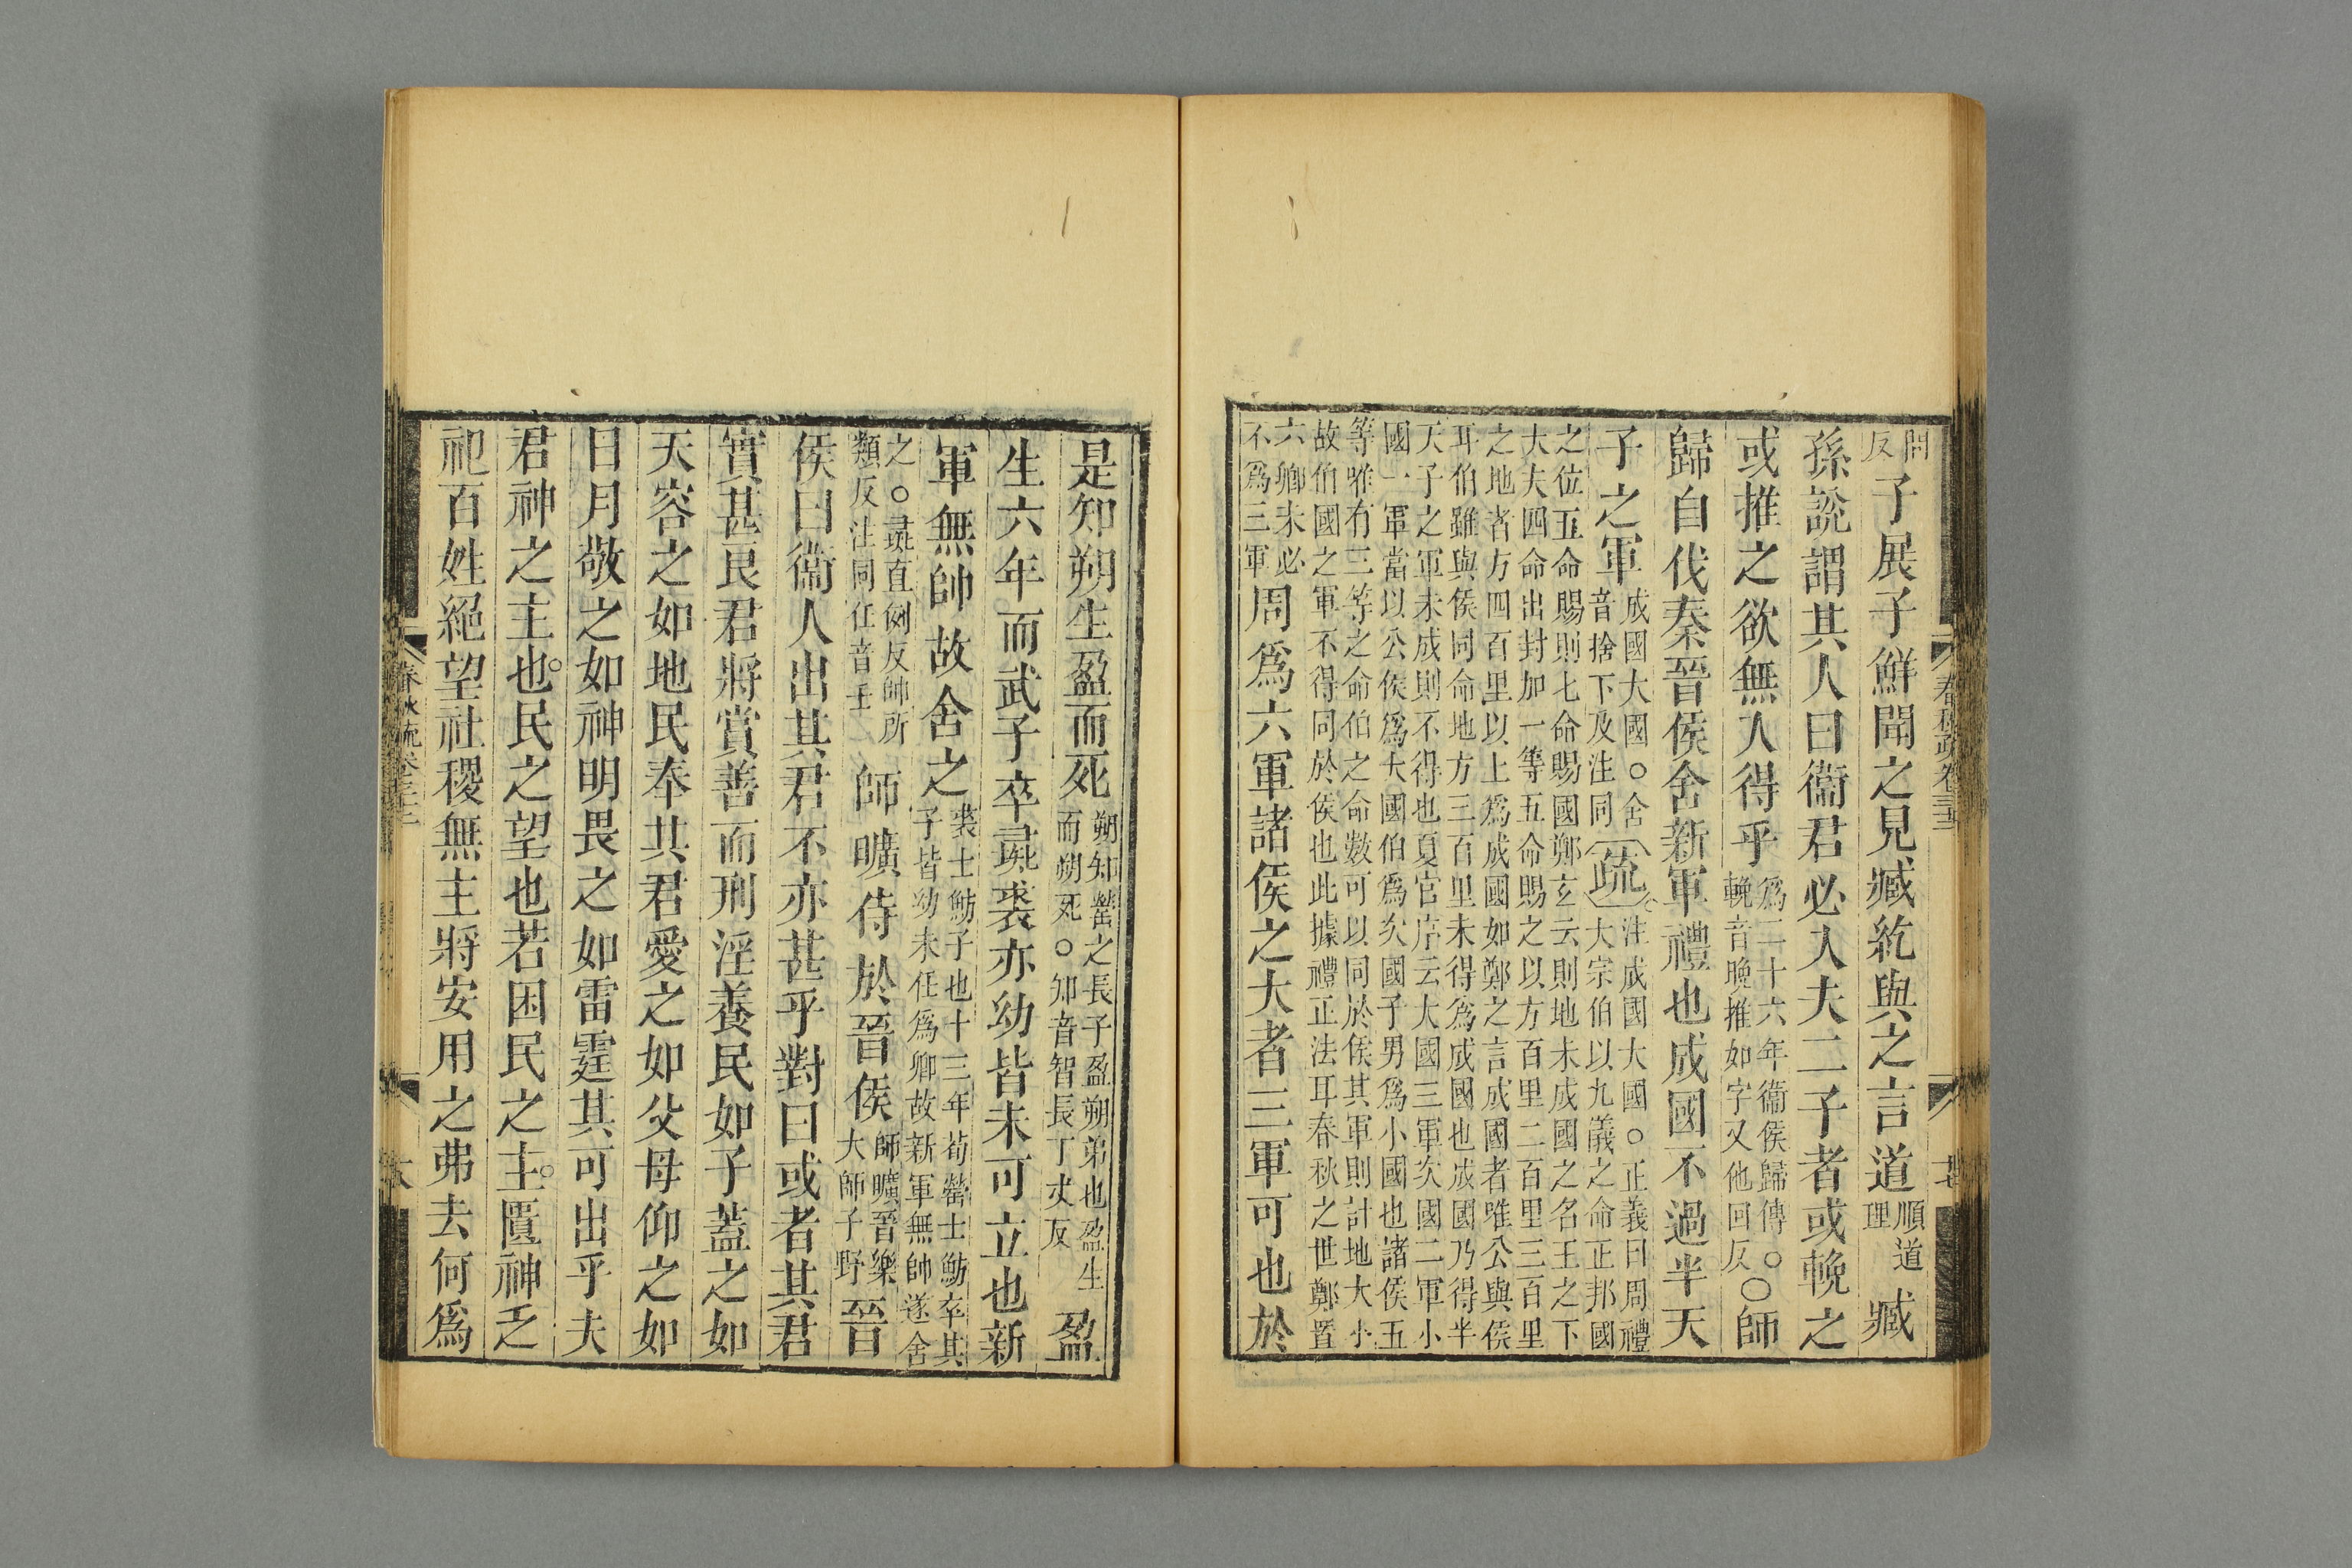 問反子展子鮮聞之見臧紇與之言道順道理臧
孫說謂其人曰衞君必入夫二子者或輓之
或推之欲無入得乎爲二十六年衞侯歸傳○輓音晚推如字又他回反○師
歸自伐秦晉侯舍新軍禮也成國不過半天
子之軍成國大國○舍音捨下及注同疏注成國大國○正義曰周禮大宗伯以九儀之命正邦國
之位五命賜則七命賜國鄭玄云則地未成國之名王之下
大夫四命出封加一等五命賜之以方百里二百里三百里
之地者方四百里以上爲成國如鄭之言成國者唯公與侯
耳伯雖與侯同命地方三百里未得爲成國也成國乃得半
天子之軍未成則不得也夏官序云大國三軍次國二軍小
國一軍當以公侯爲大國伯爲次國子男爲小國也諸侯五
等唯有三等之命伯之命數可以同於侯其軍則計地大小
故伯國之軍不得同於侯也此據禮正法耳春秋之世鄭置
六卿未必不爲三軍周爲六軍諸侯之大者三軍可也於
是知朔生盈而死朔知罃之長子盈朔弟也盈生而朔死○知音智長丁丈反盈
生六年而武子卒彘裘亦幼皆未可立也新
軍無帥故舍之裘士魴子也十三年荀罃士魴卒其子皆幼未任爲卿故新軍無帥遂舍
之○彘直例反帥所類反注同任音壬師曠侍於晉侯師曠晉樂大師子野晉
侯曰衞人出其君不亦甚乎對曰或者其君
實甚良君將賞善而刑淫養民如子蓋之如
天容之如地民奉其君愛之如父母仰之如
日月敬之如神明畏之如雷霆其可出乎夫
君神之主也民之望也若困民之主匱神乏
祀百姓絕望社稷無主將安用之弗去何爲